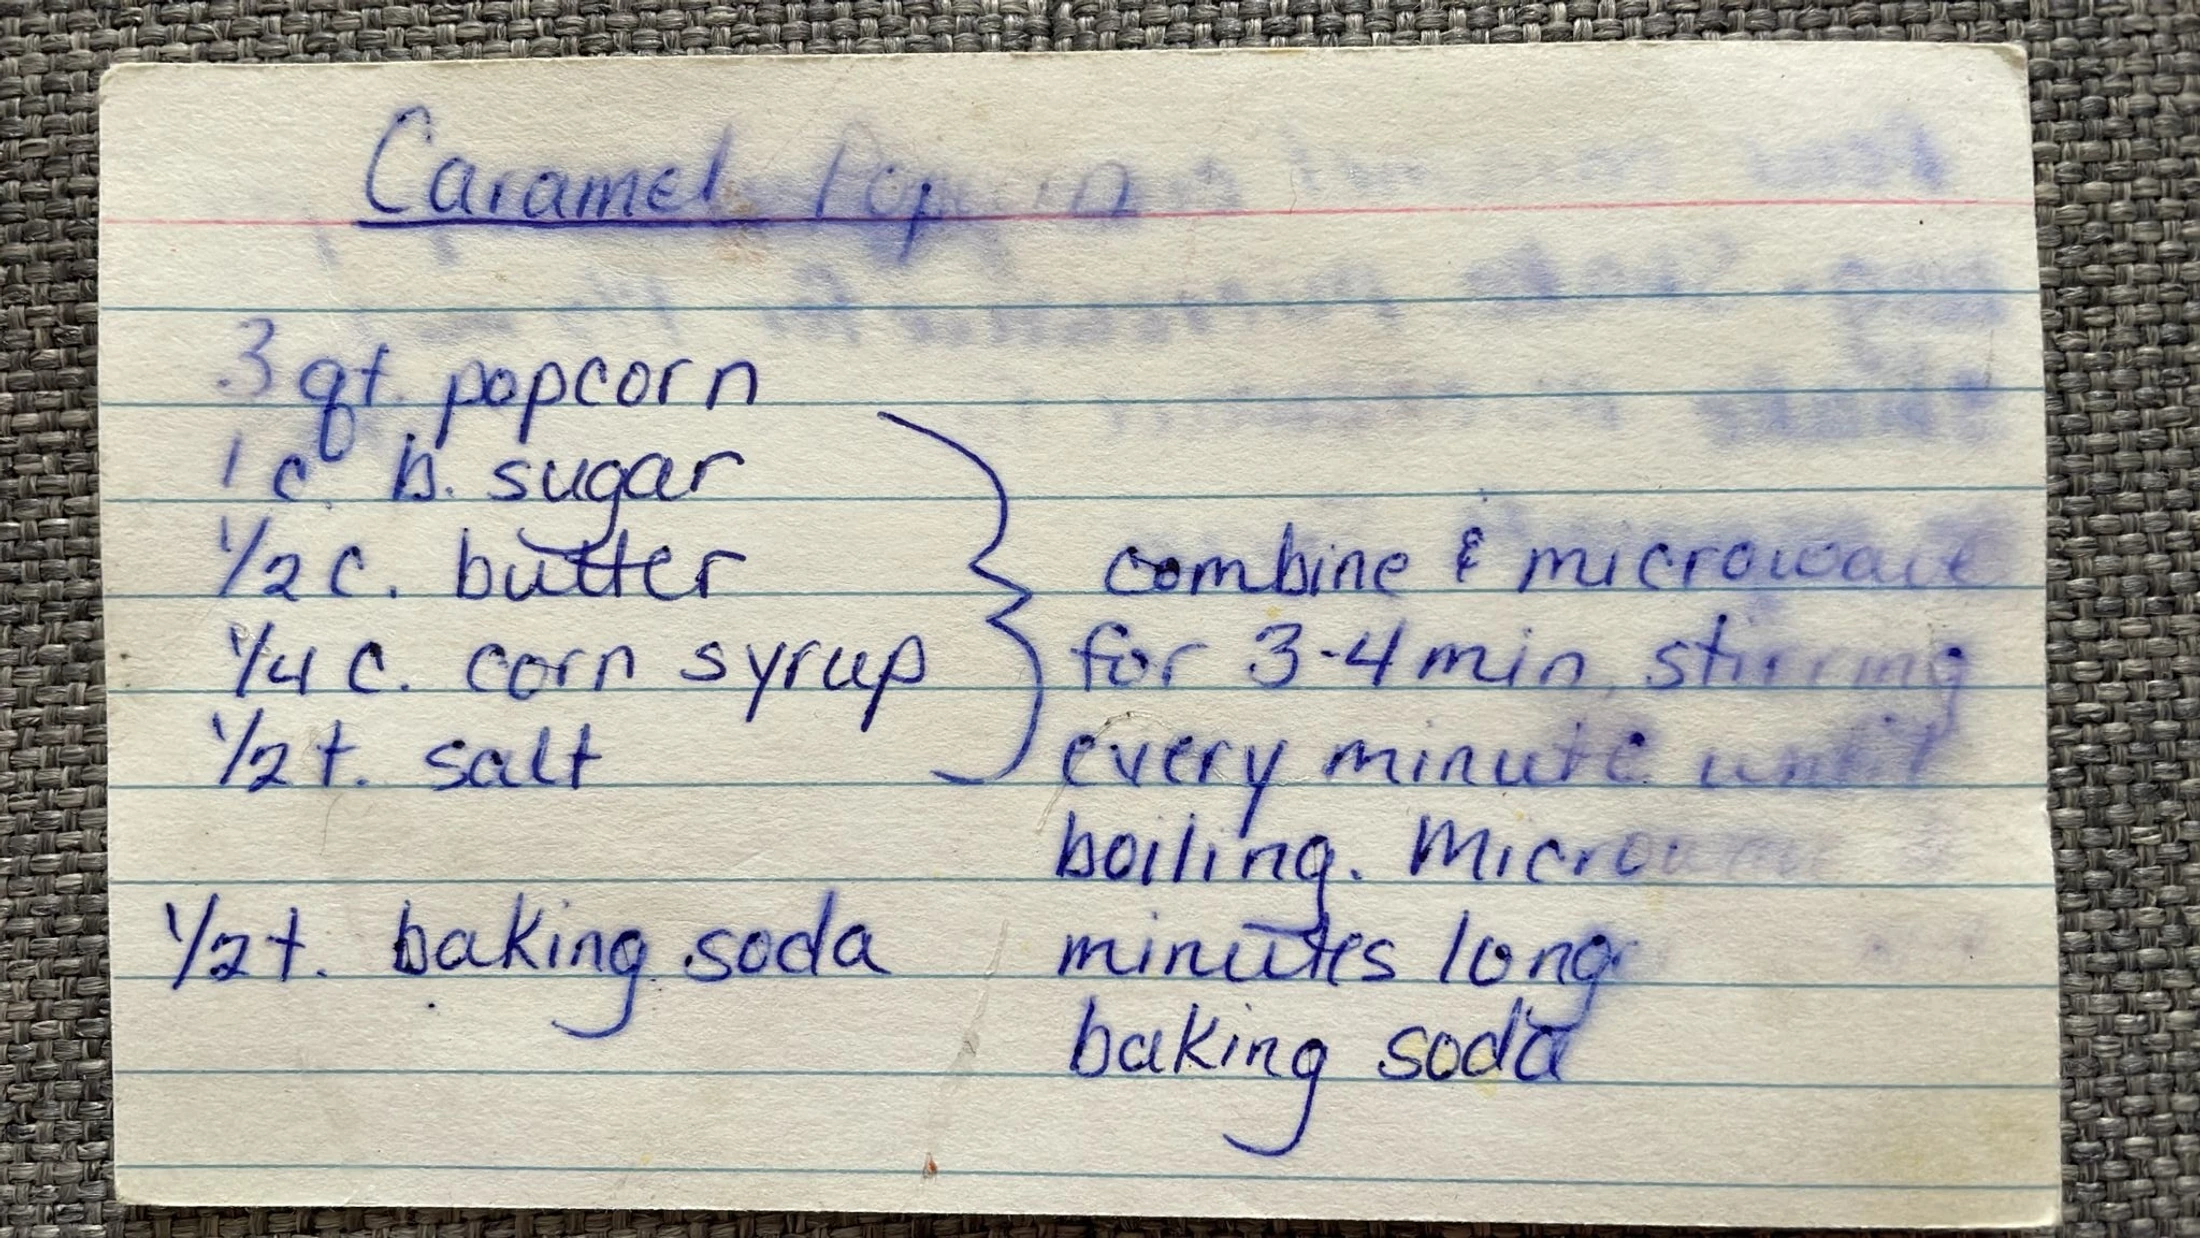 Caramel Popcorn
3 qt. popcorn
1 c. b. sugar
1/2 c. butter
1/4 c. corn syrup
1/2 t. salt
1/2 t. baking soda
combine & microwave
for 3-4 min, stirring
every minute until
boiling. Microwave
minutes long
baking soda